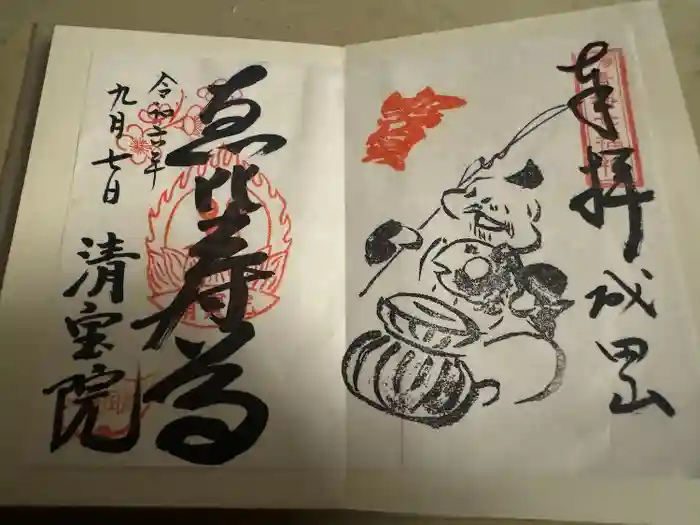 奉拝
成田山
恵比寿尊
令和六年
九月七日
清宝院